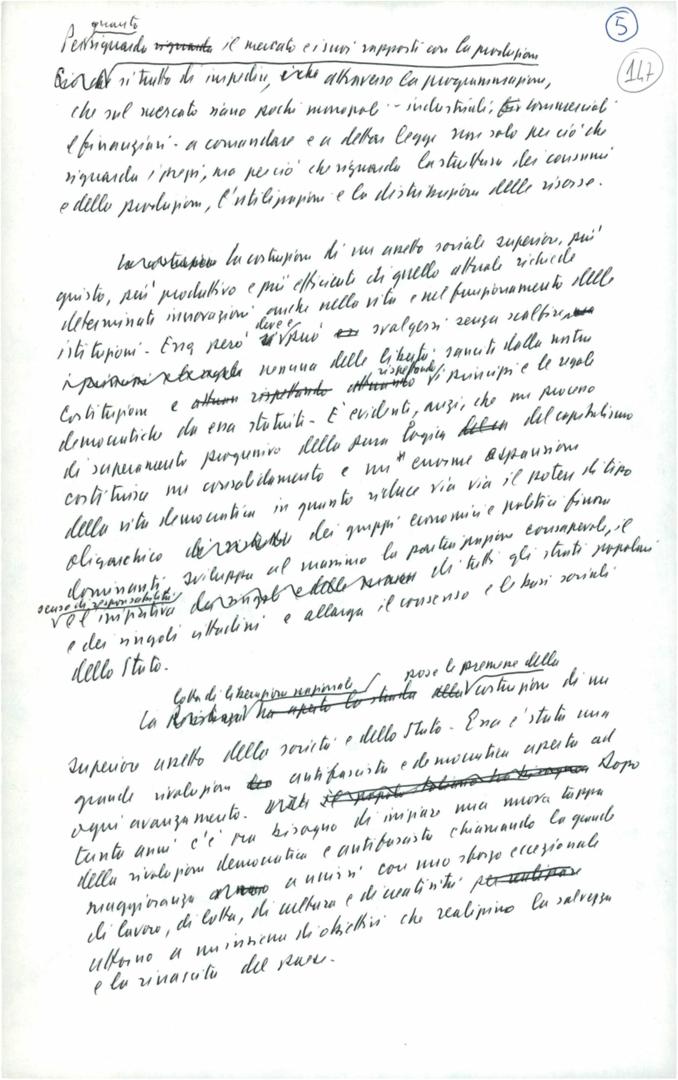 5
147
quanto
Per riguarda riguarda il mercato e i suoi rapporti con la produzione
si tratta di impedire, attraverso la programmazione,
che sul mercato siano pochi monopoli - industriali, commerciali
e finanziari - a comandare e a dettar legge non solo per ciò che
riguarda i prezzi, ma per ciò che riguarda la struttura dei consumi
e della produzione, l'utilizzazione e la distribuzione delle risorse.
La costruzione di un assetto sociale superiore, più
giusto, più produttivo e più efficiente di quello attuale richiede
determinati innovazioni anche nella vita e nel funzionamento delle
deve e
istituzioni. Essa però può svolgersi senza scalfire
nessuna delle libertà sancite dalla nostra
rispettando
Costituzione e rispettando i principi e le regole
democratiche da essa statuiti. È evidente, anzi, che un processo
di superamento progressivo della pura logica del capitalismo
costituisce un consolidamento e un enorme espansione
della vita democratica in quanto riduce via via il potere di tipo
oligarchico dei gruppi economici e politici finora
dominanti, sviluppa al massimo la partecipazione consapevole, il
senso di responsabilità
e l'iniziativa di tutti gli strati popolari
e dei singoli cittadini e allarga il consenso e le basi sociali
dello Stato.
lotta di liberazione nazionale pose le premesse della
La Resistenza ha aperto la strada alla costruzione di un
superiore assetto della società e dello Stato. Essa è stata una
grande rivoluzione antifascista e democratica aperta ad
ogni avanzamento. Dopo
tanti anni c'è ora bisogno di iniziare una nuova tappa
della rivoluzione democratica e antifascista chiamando la grande
maggioranza a unirsi con uno sforzo eccezionale
di lavoro, di lotta, di cultura e di creatività per realizzare
attorno a un insieme di obiettivi che realizzino la salvezza
e la rinascita del paese.